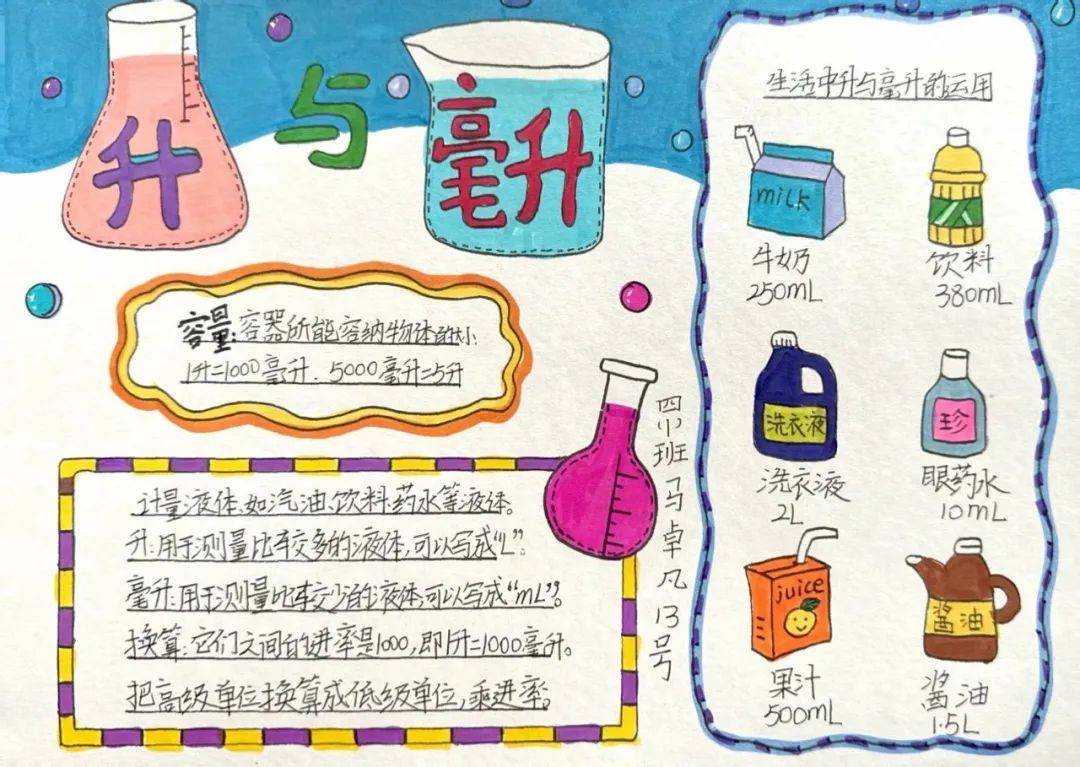 升与毫升
容量:容器所能容纳物体的大小;
1升=1000毫升.5000毫升=5升
计量液体,如汽油、饮料、药水等液体。
升:用于测量比较多的液体,可以写成“L”;
毫升:用于测量比较少的液体,可以写成“mL”。
换算:它们之间的进率是1000,即1升=1000毫升。
把高级单位换算成低级单位,乘进率。
四小班马卓凡13号
生活中升与毫升的运用
milk
牛奶
250mL
饮料
380mL
洗衣液
洗衣液
2L
珍
眼药水
10mL
juice
果汁
500mL
酱油
酱油
1.5L